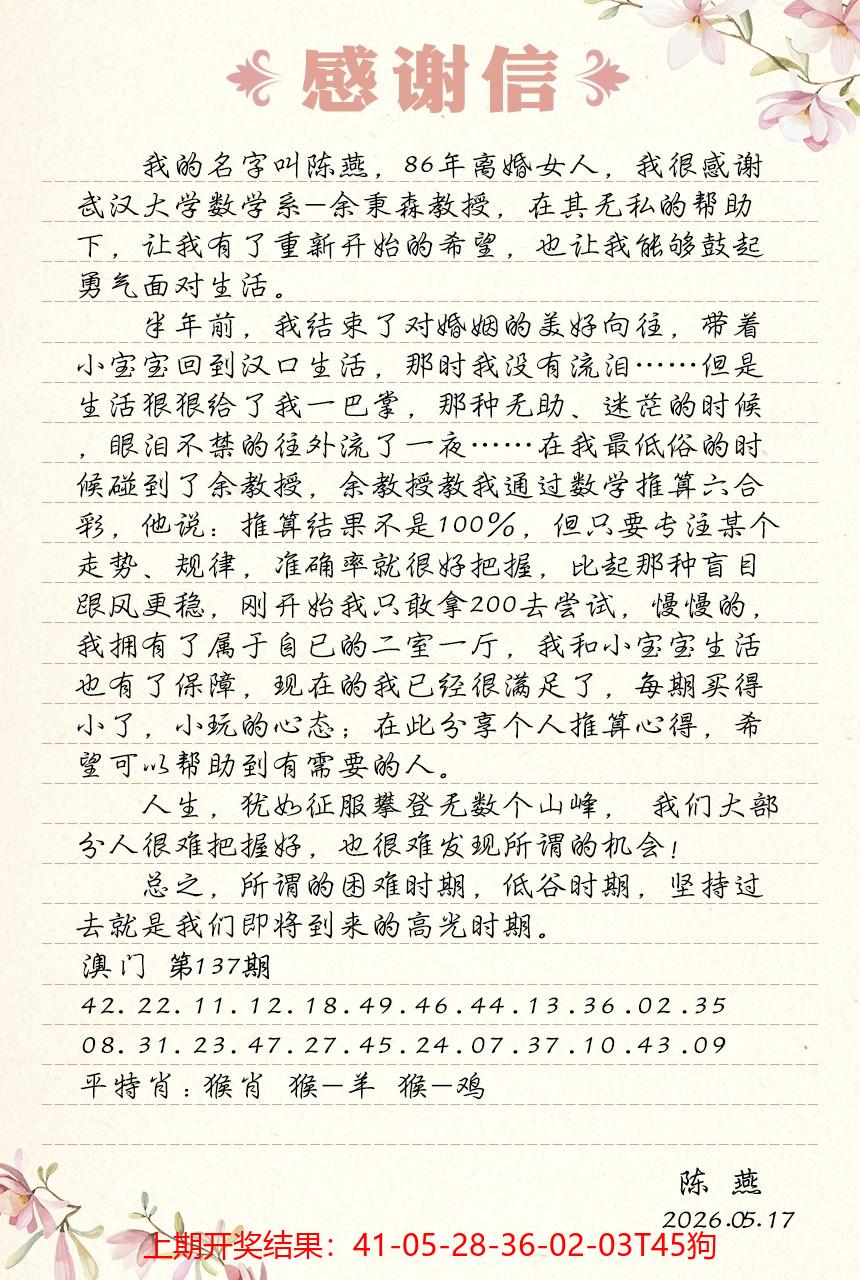 感谢信
我的名字叫陈燕，86年离婚女人，我很感谢
武汉大学数学系—余秉森教授，在其无私的帮助
下，让我有了重新开始的希望，也让我能够鼓起
勇气面对生活。
半年前，我结束了对婚姻的美好向往，带着
小宝宝回到汉口生活，那时我没有流泪……但是
生活狠狠给了我一巴掌，那种无助、迷茫的时候
，眼泪不禁的往外流了一夜……在我最低俗的时
候碰到了余教授，余教授教我通过数学推算六合
彩，他说：推算结果不是100%，但只要专注某个
走势、规律，准确率就很好把握，比起那种盲目
跟风更稳，刚开始我只敢拿200去尝试，慢慢的，
我拥有了属于自已的二室一厅，我和小宝宝生活
也有了保障，现在的我已经很满足了，每期买得
小了，小玩的心态；在此分享个人推算心得，希
望可以帮助到有需要的人。
人生，犹如征服攀登无数个山峰， 我们大部
分人很难把握好，也很难发现所谓的机会！
总之，所谓的困难时期，低谷时期，坚持过
去就是我们即将到来的高光时期。
澳门 第137期
42.22.11.12.18.49.46.44.13.36.02.35
08.31.23.47.27.45.24.07.37.10.43.09
平特肖：猴肖 猴—羊 猴—鸡
陈 燕
2026.05.17
上期开奖结果：41-05-28-36-02-03T45狗